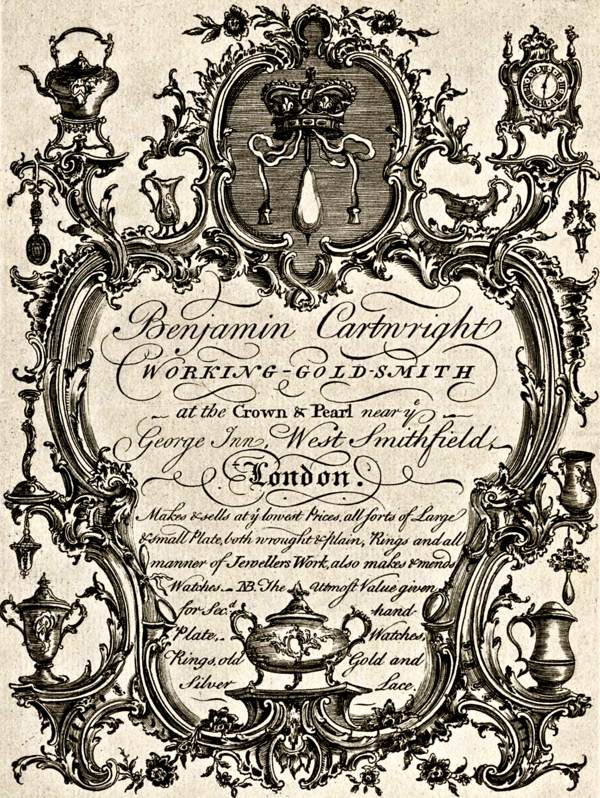 Benjamin Cartwright
WORKING-GOLD-SMITH
at the Crown & Pearl near yᵉ
George Inn, West Smithfield,
London.
Makes & sells at yᵉ lowest Prices, all sorts of Large
& small Plate, both wrought & Plain, Rings and all
manner of Jewellers Work, also makes & mends
Watches. NB. The Utmost Value given
for Secᵈ. hand
Plate, Watches,
Rings, old Gold and
Silver Lace.